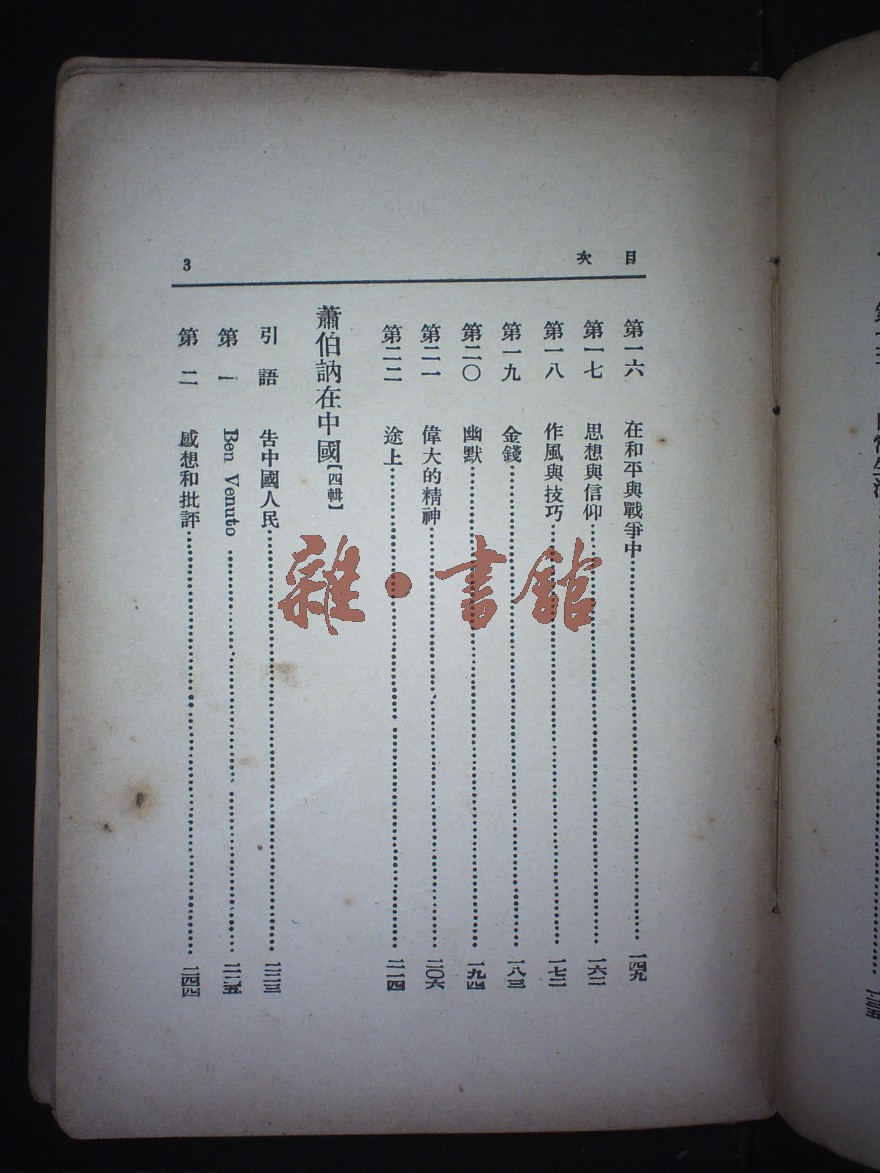 目次
3
第一六 在和平與戰爭中 一四九
第一七 思想與信仰 一六二
第一八 作風與技巧 一七二
第一九 金錢 一八三
第二〇 幽默 一九四
第二一 偉大的精神 二〇六
第二二 途上 二一四
蕭伯訥在中國【四輯】
引語 告中國人民 二二三
第一 Ben Venuto 二二五
第二 感想和批評 二四四
雜·書館